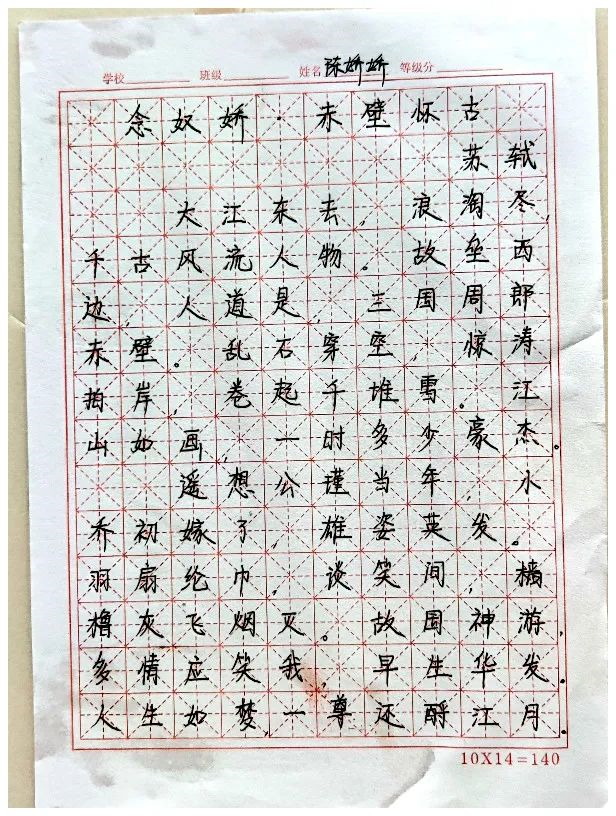 学校 班级 姓名 陈娇娇 等级分
念奴娇·赤壁怀古
苏轼
大江东去,浪淘尽,
千古风流人物。故垒西
边,人道是,三国周郎
赤壁。乱石穿空,惊涛
拍岸,卷起千堆雪。江
山如画,一时多少豪杰。
遥想公瑾当年,小
乔初嫁了,雄姿英发。
羽扇纶巾,谈笑间,樯
橹灰飞烟灭。故国神游,
多情应笑我,早生华发。
人生如梦,一尊还酹江月。
10X14=140